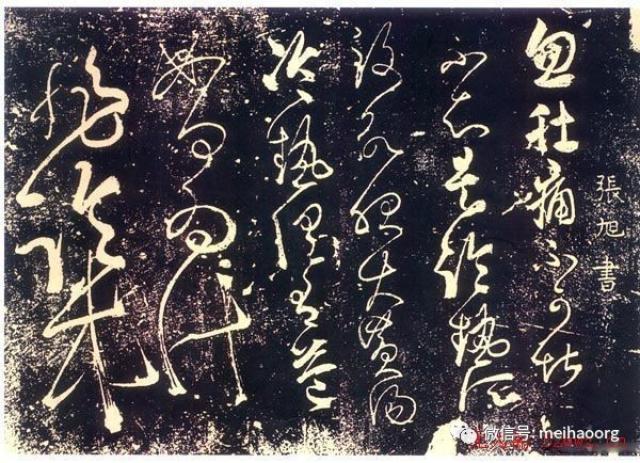 張旭書
忽肚痛不可堪
不知是冷熱所
致欲服大黃湯
冷熱俱有益
如何為計
非臨床
微信号: meihaoorg